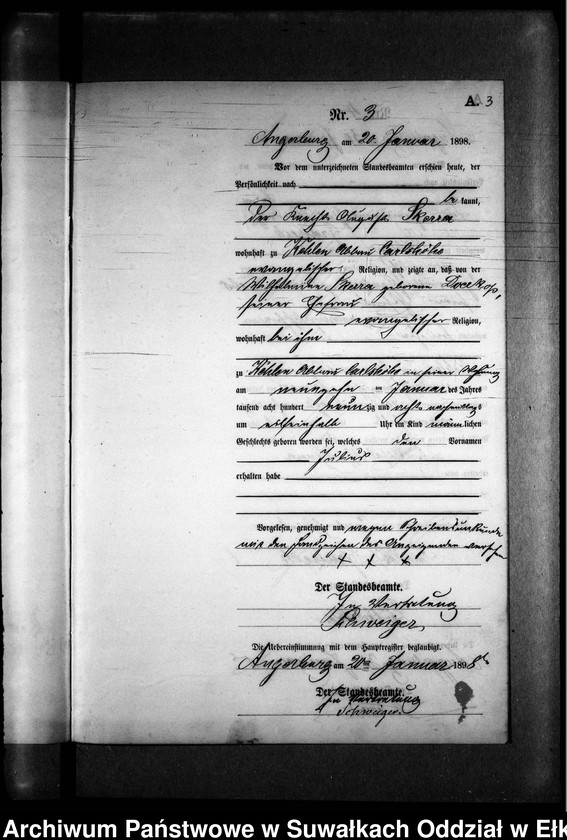 A. 3
Nr. 3
Angerburg am 20. Januar 1898.
Vor dem unterzeichneten Standesbeamten erschien heute, der
Persönlichkeit nach
be kannt,
der Knecht August Skerra
wohnhaft zu Kehlen Abbau Carlshöhe
evangelischer Religion, und zeigte an, daß von der
Wilhelmine Skerra geborene
seiner Ehefrau
evangelischer Religion,
wohnhaft bei ihm
zu Kehlen Abbau Carlshöhe in seiner Wohnung
am neunzehn ten Januar des Jahres
tausend acht hundert neun zig und acht nachmittags
um elfeinhalb Uhr ein Kind männlichen
Geschlechts geboren worden sei, welches den Vornamen
Julius
erhalten habe
Vorgelesen, genehmigt und wegen Schreibensunkunde
mit den Handzeichen des Anzeigenden versehen
+ + +
Der Standesbeamte.
In Vertretung
Schweiger
Die Uebereinstimmung mit dem Hauptregister beglaubigt.
Angerburg am 20ten Januar 1898
Der Standesbeamte.
In Vertretung
Schweiger.
Archiwum Państwowe w Suwałkach Oddział w Ełk